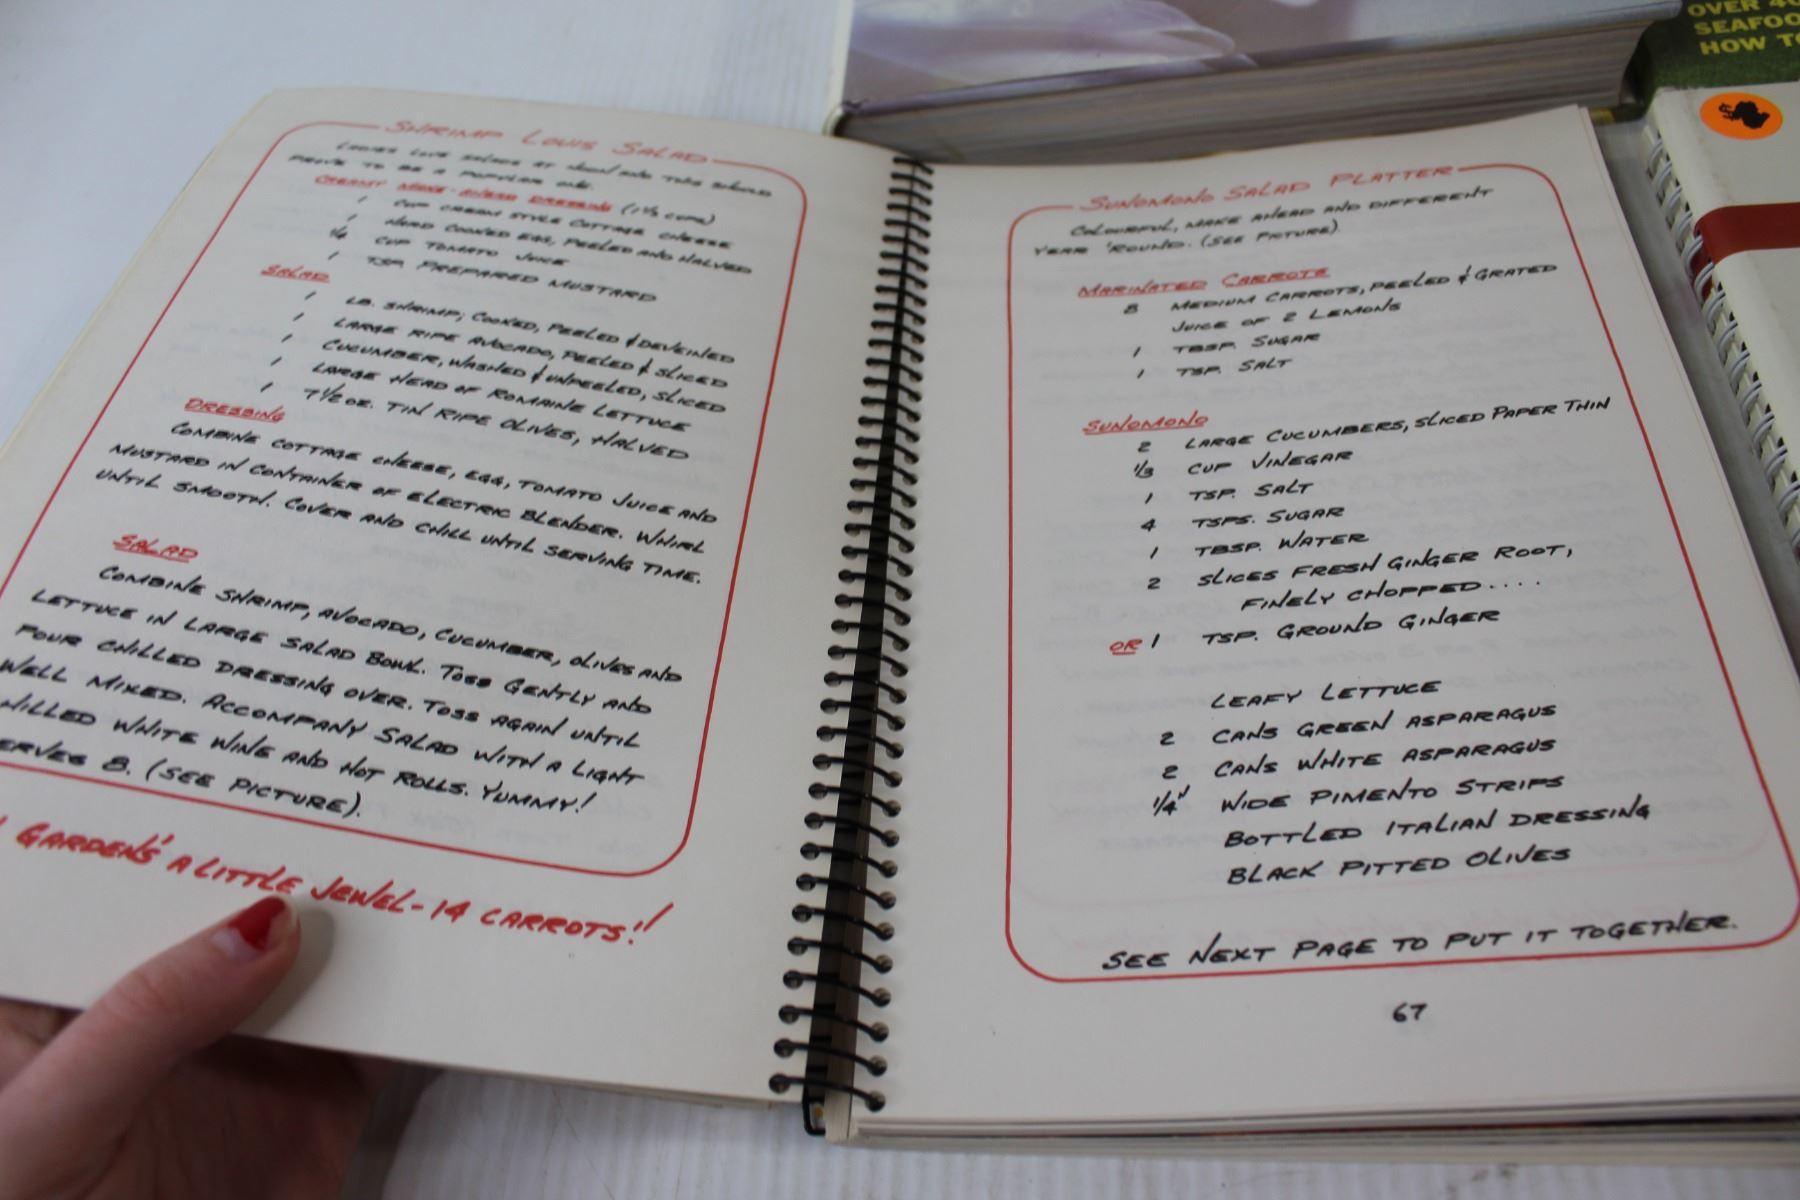 SHRIMP LOUIS SALAD
LADIES LOVE SALADS AT NOON AND THIS SHOULD
PROVE TO BE A POPULAR ONE.
CREAMY MAKE-AHEAD DRESSING (1 1/2 CUPS)
1 CUP CREAM STYLE COTTAGE CHEESE
1 HARD COOKED EGG, PEELED AND HALVED
1/4 CUP TOMATO JUICE
1 TSP. PREPARED MUSTARD
SALAD
1 LB. SHRIMP; COOKED, PEELED & DEVEINED
1 LARGE RIPE AVOCADO, PEELED & SLICED
1 CUCUMBER, WASHED & UNPEELED, SLICED
1 LARGE HEAD OF ROMAINE LETTUCE
1 7 1/2 OZ. TIN RIPE OLIVES, HALVED
DRESSING
COMBINE COTTAGE CHEESE, EGG, TOMATO JUICE AND
MUSTARD IN CONTAINER OF ELECTRIC BLENDER. WHIRL
UNTIL SMOOTH. COVER AND CHILL UNTIL SERVING TIME.
SALAD
COMBINE SHRIMP, AVOCADO, CUCUMBER, OLIVES AND
LETTUCE IN LARGE SALAD BOWL. TOSS GENTLY AND
POUR CHILLED DRESSING OVER. TOSS AGAIN UNTIL
WELL MIXED. ACCOMPANY SALAD WITH A LIGHT
HILLED WHITE WINE AND HOT ROLLS. YUMMY!
ERVES 8. (SEE PICTURE).
GARDENS' A LITTLE JEWEL-14 CARROTS!!
SUNOMONO SALAD PLATTER
COLOURFUL, MAKE AHEAD AND DIFFERENT
YEAR 'ROUND. (SEE PICTURE).
MARINATED CARROTS
8 MEDIUM CARROTS, PEELED & GRATED
JUICE OF 2 LEMONS
1 TBSP. SUGAR
1 TSP. SALT
SUNOMONO
2 LARGE CUCUMBERS, SLICED PAPER THIN
1/3 CUP VINEGAR
1 TSP. SALT
4 TSPS. SUGAR
1 TBSP. WATER
2 SLICES FRESH GINGER ROOT,
FINELY CHOPPED....
OR 1 TSP. GROUND GINGER
LEAFY LETTUCE
2 CANS GREEN ASPARAGUS
2 CANS WHITE ASPARAGUS
1/4" WIDE PIMENTO STRIPS
BOTTLED ITALIAN DRESSING
BLACK PITTED OLIVES
SEE NEXT PAGE TO PUT IT TOGETHER.
67
OVER 40
SEAFOO
HOW TO
$